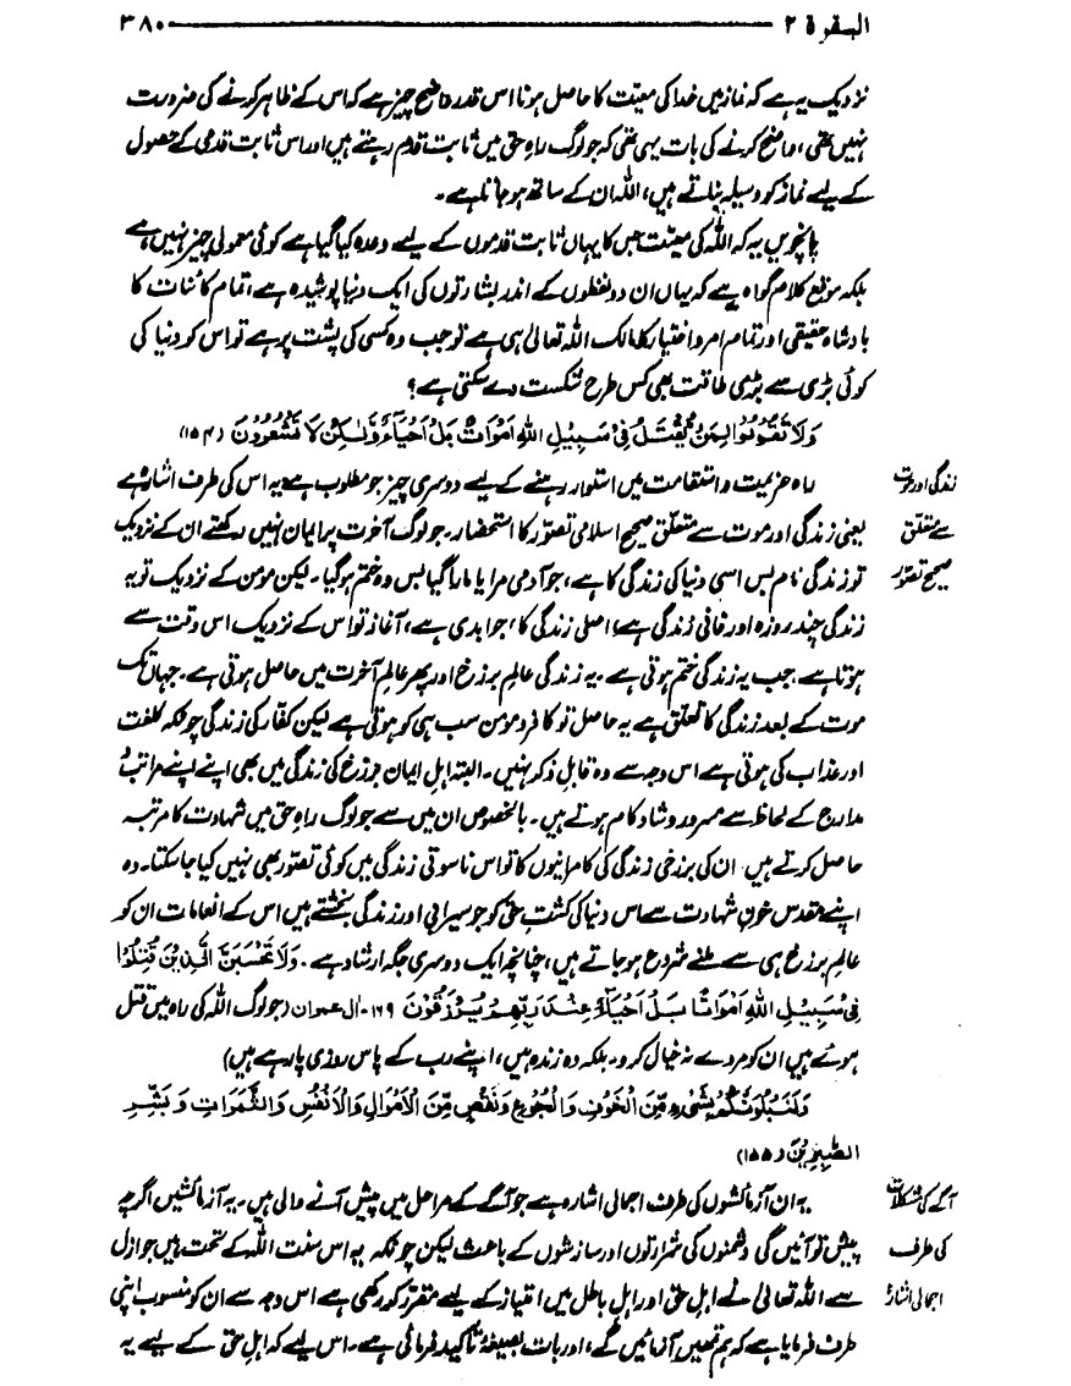 البقرة ۲ ۳۸۰
نزدیک یہ ہے کہ نماز میں خدا کی معیّت کا حاصل ہونا اس قدر واضح چیز ہے کہ اس کے ظاہر کرنے کی ضرورت
نہیں تھی، واضح کرنے کی بات یہی تھی کہ جو لوگ راہِ حق میں ثابت قدم رہتے ہیں اور اس ثابت قدمی کے حصول
کے لیے نماز کو وسیلہ بناتے ہیں، اللہ ان کے ساتھ ہو جاتا ہے۔
پانچویں یہ کہ اللہ کی معیّت جس کا یہاں ثابت قدموں کے لیے وعدہ کیا گیا ہے کوئی معمولی چیز نہیں ہے
بلکہ موقع کلام گواہ ہے کہ یہاں ان دو لفظوں کے اندر بشارتوں کی ایک دنیا پوشیدہ ہے، تمام کائنات کا
بادشاہ حقیقی اور تمام امر و اختیار کا مالک اللہ تعالیٰ ہی ہے تو جب وہ کسی کی پشت پر ہے تو اس کو دنیا کی
کوئی بڑی سے بڑی طاقت بھی کس طرح شکست دے سکتی ہے؟
وَلَا تَقُوْلُوْا لِمَنْ يُّقْتَلُ فِيْ سَبِيْلِ اللّٰهِ اَمْوَاتٌ بَلْ اَحْيَآءٌ وَّلٰكِنْ لَّا تَشْعُرُوْنَ (۱۵۴)
زندگی اور موت
سے متعلق
صحیح تصوّر
راہ عزیمت و استقامت میں استوار رہنے کے لیے دوسری چیز جو مطلوب ہے یہ اس کی طرف اشارہ ہے
یعنی زندگی اور موت سے متعلّق صحیح اسلامی تصوّر کا استحضار۔ جو لوگ آخرت پر ایمان نہیں رکھتے ان کے نزدیک
تو زندگی نام بس اسی دنیا کی زندگی کا ہے، جو آدمی مرا یا مارا گیا بس وہ ختم ہو گیا۔ لیکن مومن کے نزدیک تو یہ
زندگی چند روزہ اور فانی زندگی ہے، اصلی زندگی کا، جو ابدی ہے، آغاز تو اس کے نزدیک اس وقت سے
ہوتا ہے جب یہ زندگی ختم ہوتی ہے۔ یہ زندگی عالمِ برزخ اور پھر عالمِ آخرت میں حاصل ہوتی ہے۔ جہاں تک
موت کے بعد زندگی کا تعلّق ہے یہ حاصل تو کافر و مومن سب ہی کو ہوتی ہے لیکن کفّار کی زندگی چونکہ کلفت
اور عذاب کی ہوتی ہے اس وجہ سے وہ قابلِ ذکر نہیں۔ البتہ اہلِ ایمان برزخ کی زندگی میں بھی اپنے اپنے مراتب و
مدارج کے لحاظ سے مسرور و شاد کام ہوتے ہیں۔ بالخصوص ان میں سے جو لوگ راہِ حق میں شہادت کا مرتبہ
حاصل کرتے ہیں۔ ان کی برزخی زندگی کی کامرانیوں کا تو اس ناسوتی زندگی میں کوئی تصوّر بھی نہیں کیا جا سکتا۔ وہ
اپنے مقدس خونِ شہادت سے اس دنیا کی کشتِ حق کو جو سیرابی اور زندگی بخشتے ہیں اس کے انعامات ان کو
عالمِ برزخ ہی سے ملنے شروع ہو جاتے ہیں، چنانچہ ایک دوسری جگہ ارشاد ہے۔ وَلَا تَحْسَبَنَّ الَّذِيْنَ قُتِلُوْا
فِيْ سَبِيْلِ اللّٰهِ اَمْوَاتًا بَلْ اَحْيَآءٌ عِنْدَ رَبِّهِمْ يُرْزَقُوْنَ ۱۶۹۔ اٰل عمران (جو لوگ اللہ کی راہ میں قتل
ہوئے ہیں ان کو مردے نہ خیال کرو۔ بلکہ وہ زندہ ہیں، اپنے رب کے پاس روزی پا رہے ہیں)
وَلَنَبْلُوَنَّكُمْ بِشَيْءٍ مِّنَ الْخَوْفِ وَالْجُوْعِ وَنَقْصٍ مِّنَ الْاَمْوَالِ وَالْاَنْفُسِ وَالثَّمَرَاتِ وَبَشِّرِ
الصّٰبِرِيْنَ (۱۵۵)
آگے کی مشکلات
کی طرف
اجمالی اشارہ
یہ ان آزمائشوں کی طرف اجمالی اشارہ ہے جو آگے کے مراحل میں پیش آنے والی ہیں۔ یہ آزمائشیں اگرچہ
پیش تو آئیں گی دشمنوں کی شرارتوں اور سازشوں کے باعث لیکن چونکہ یہ اس سنت اللہ کے تحت ہیں جو ازل
سے اللہ تعالیٰ نے اہلِ حق اور اہلِ باطل میں امتیاز کے لیے مقرر کر رکھی ہے اس وجہ سے ان کو منسوب اپنی
طرف فرمایا ہے کہ ہم تمہیں آزمائیں گے، اور بات بصیغۂ تاکید فرمائی ہے۔ اس لیے کہ اہلِ حق کے لیے یہ